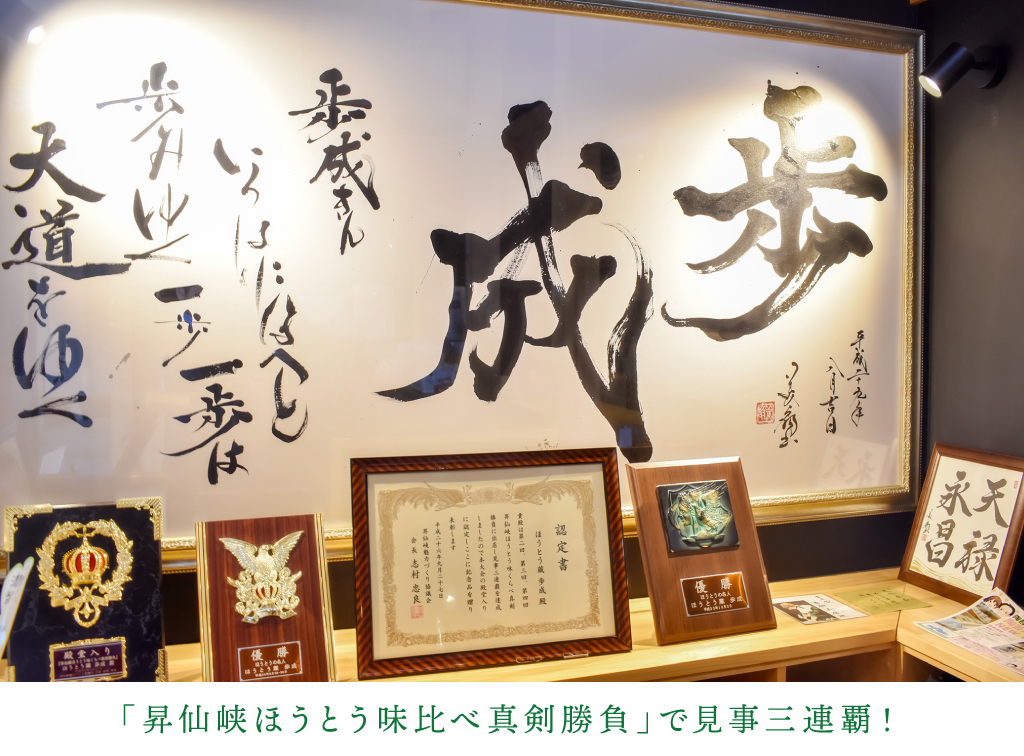 歩成
平成二十九年
八月吉日
歩成さん
いろはにほへと
歩みゆく
一歩一歩は
天道をゆく
認定書
ほうとう蔵 歩成 殿
貴殿は第二回、第三回、第四回
昇仙峡ほうとう味くらべ真剣
勝負に出店し見事三連覇を達成
しましたので本大会の殿堂入り
に認定しここに記念品を贈り
表彰します
平成二十六年九月二十七日
昇仙峡魅力づくり協議会
会長 志村忠良
殿堂入り
ほうとう蔵 歩成 殿
優勝
ほうとうの名人
ほうとう蔵 歩成
優勝
ほうとうの名人
ほうとう蔵 歩成
天禄
永昌
「昇仙峡ほうとう味比べ真剣勝負」で見事三連覇！